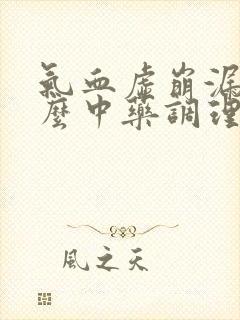 氣血虛崩漏
麼中藥調理
風之天